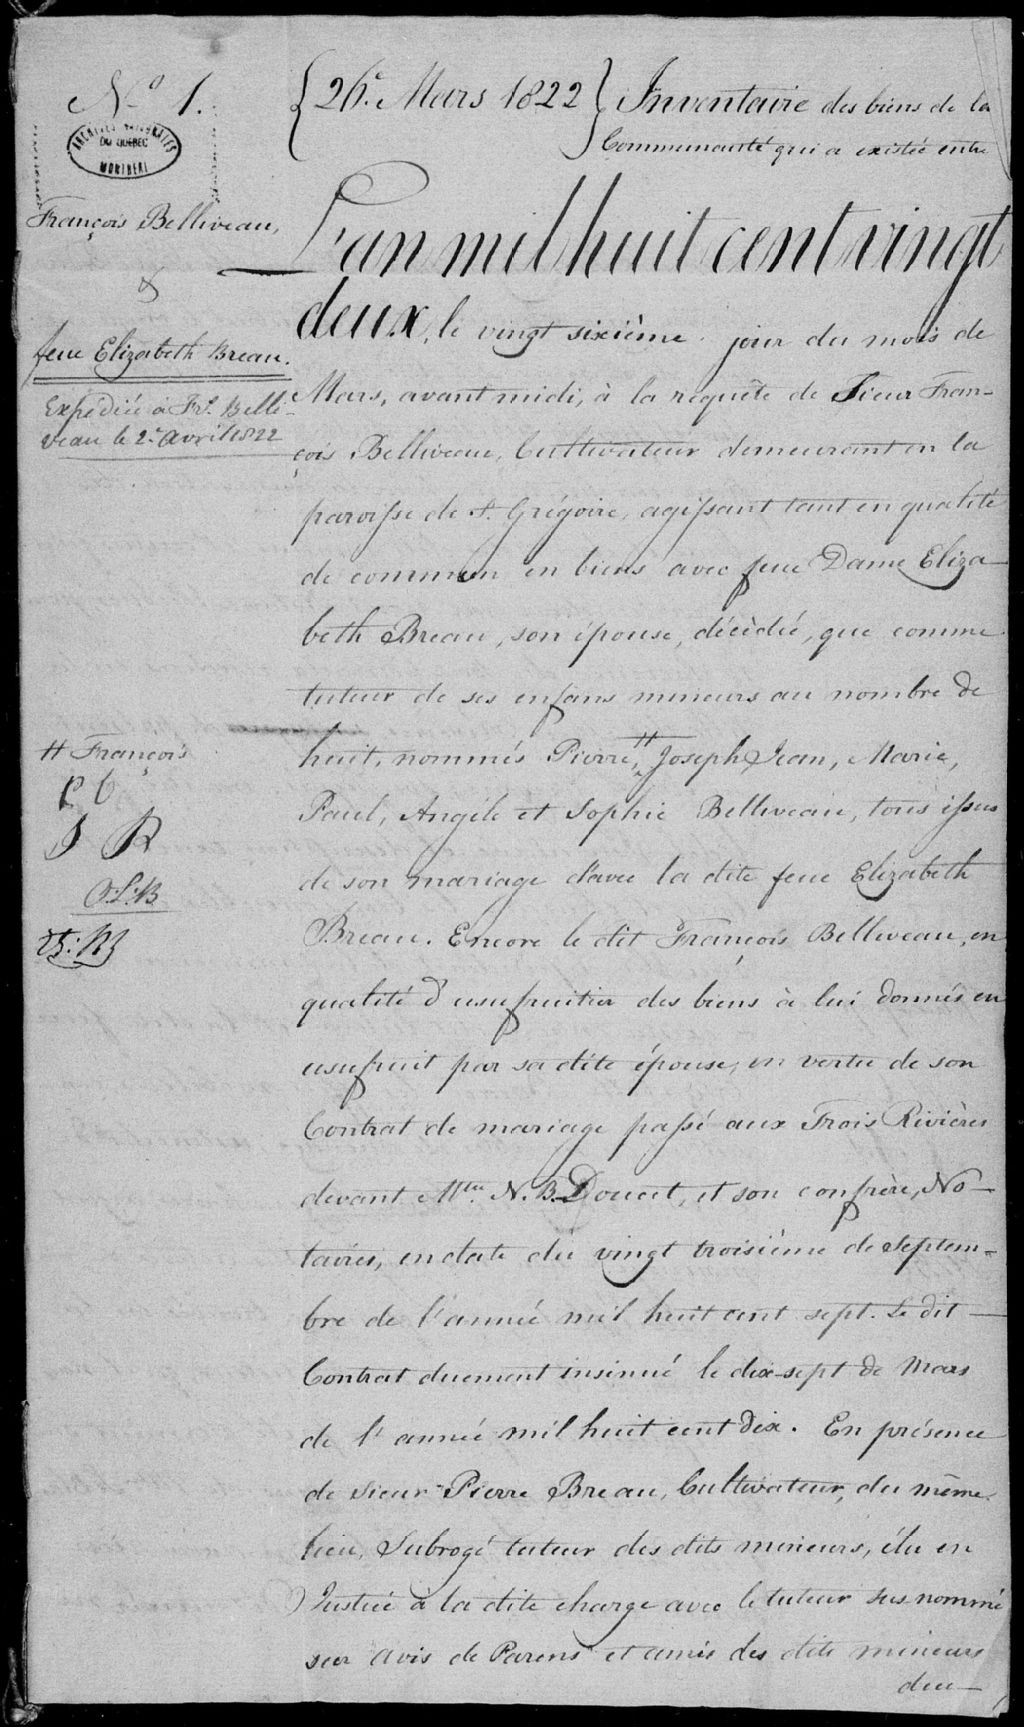 No 1.
{26e. Mars 1822} Inventaire des biens de la
Communauté qui a existée entre
ARCHIVES NATIONALES
DU QUÉBEC
MONTRÉAL
François Belliveau,
&
feue Elizabeth Breau.
Expédiée à Frs. Belli-
veau le 2e. avril 1822
L'an mil huit cent vingt
deux, le vingt sixième jour du mois de
Mars, avant midi, à la requête de Sieur Fran-
çois Belliveau, Cultivateur demeurant en la
paroisse de St. Grégoire, agissant tant en qualité
de commun en biens avec feue Dame Eliza-
beth Breau, son épouse, décédée, que comme
tuteur de ses enfans mineurs au nombre de
huit, nommés Pierre, # Joseph, Jean, Marie,
Paul, Angèle et Sophie Belliveau, tous issus
de son mariage d'avec la dite feue Elizabeth
Breau. Encore le dit François Belliveau, en
qualité d'usufruitier des biens à lui donnés en
usufruit par sa dite épouse, en vertu de son
Contrat de mariage passé aux Trois Rivières
devant Mtre. N. B. Doucet, et son confrère, No-
taires, en date du vingt troisième de Septem-
bre de l'année mil huit cent sept. Le dit
Contrat duement insinué le dix-sept de Mars
de l'année mil huit cent dix. En présence
de Sieur Pierre Breau, Cultivateur, du même
lieu, Subrogé tuteur des dits mineurs, élu en
Justice à la dite charge avec le tuteur sus nommé
sur avis de Parens et amis des dits mineurs
due-
# François
P b
J R
O.L:B